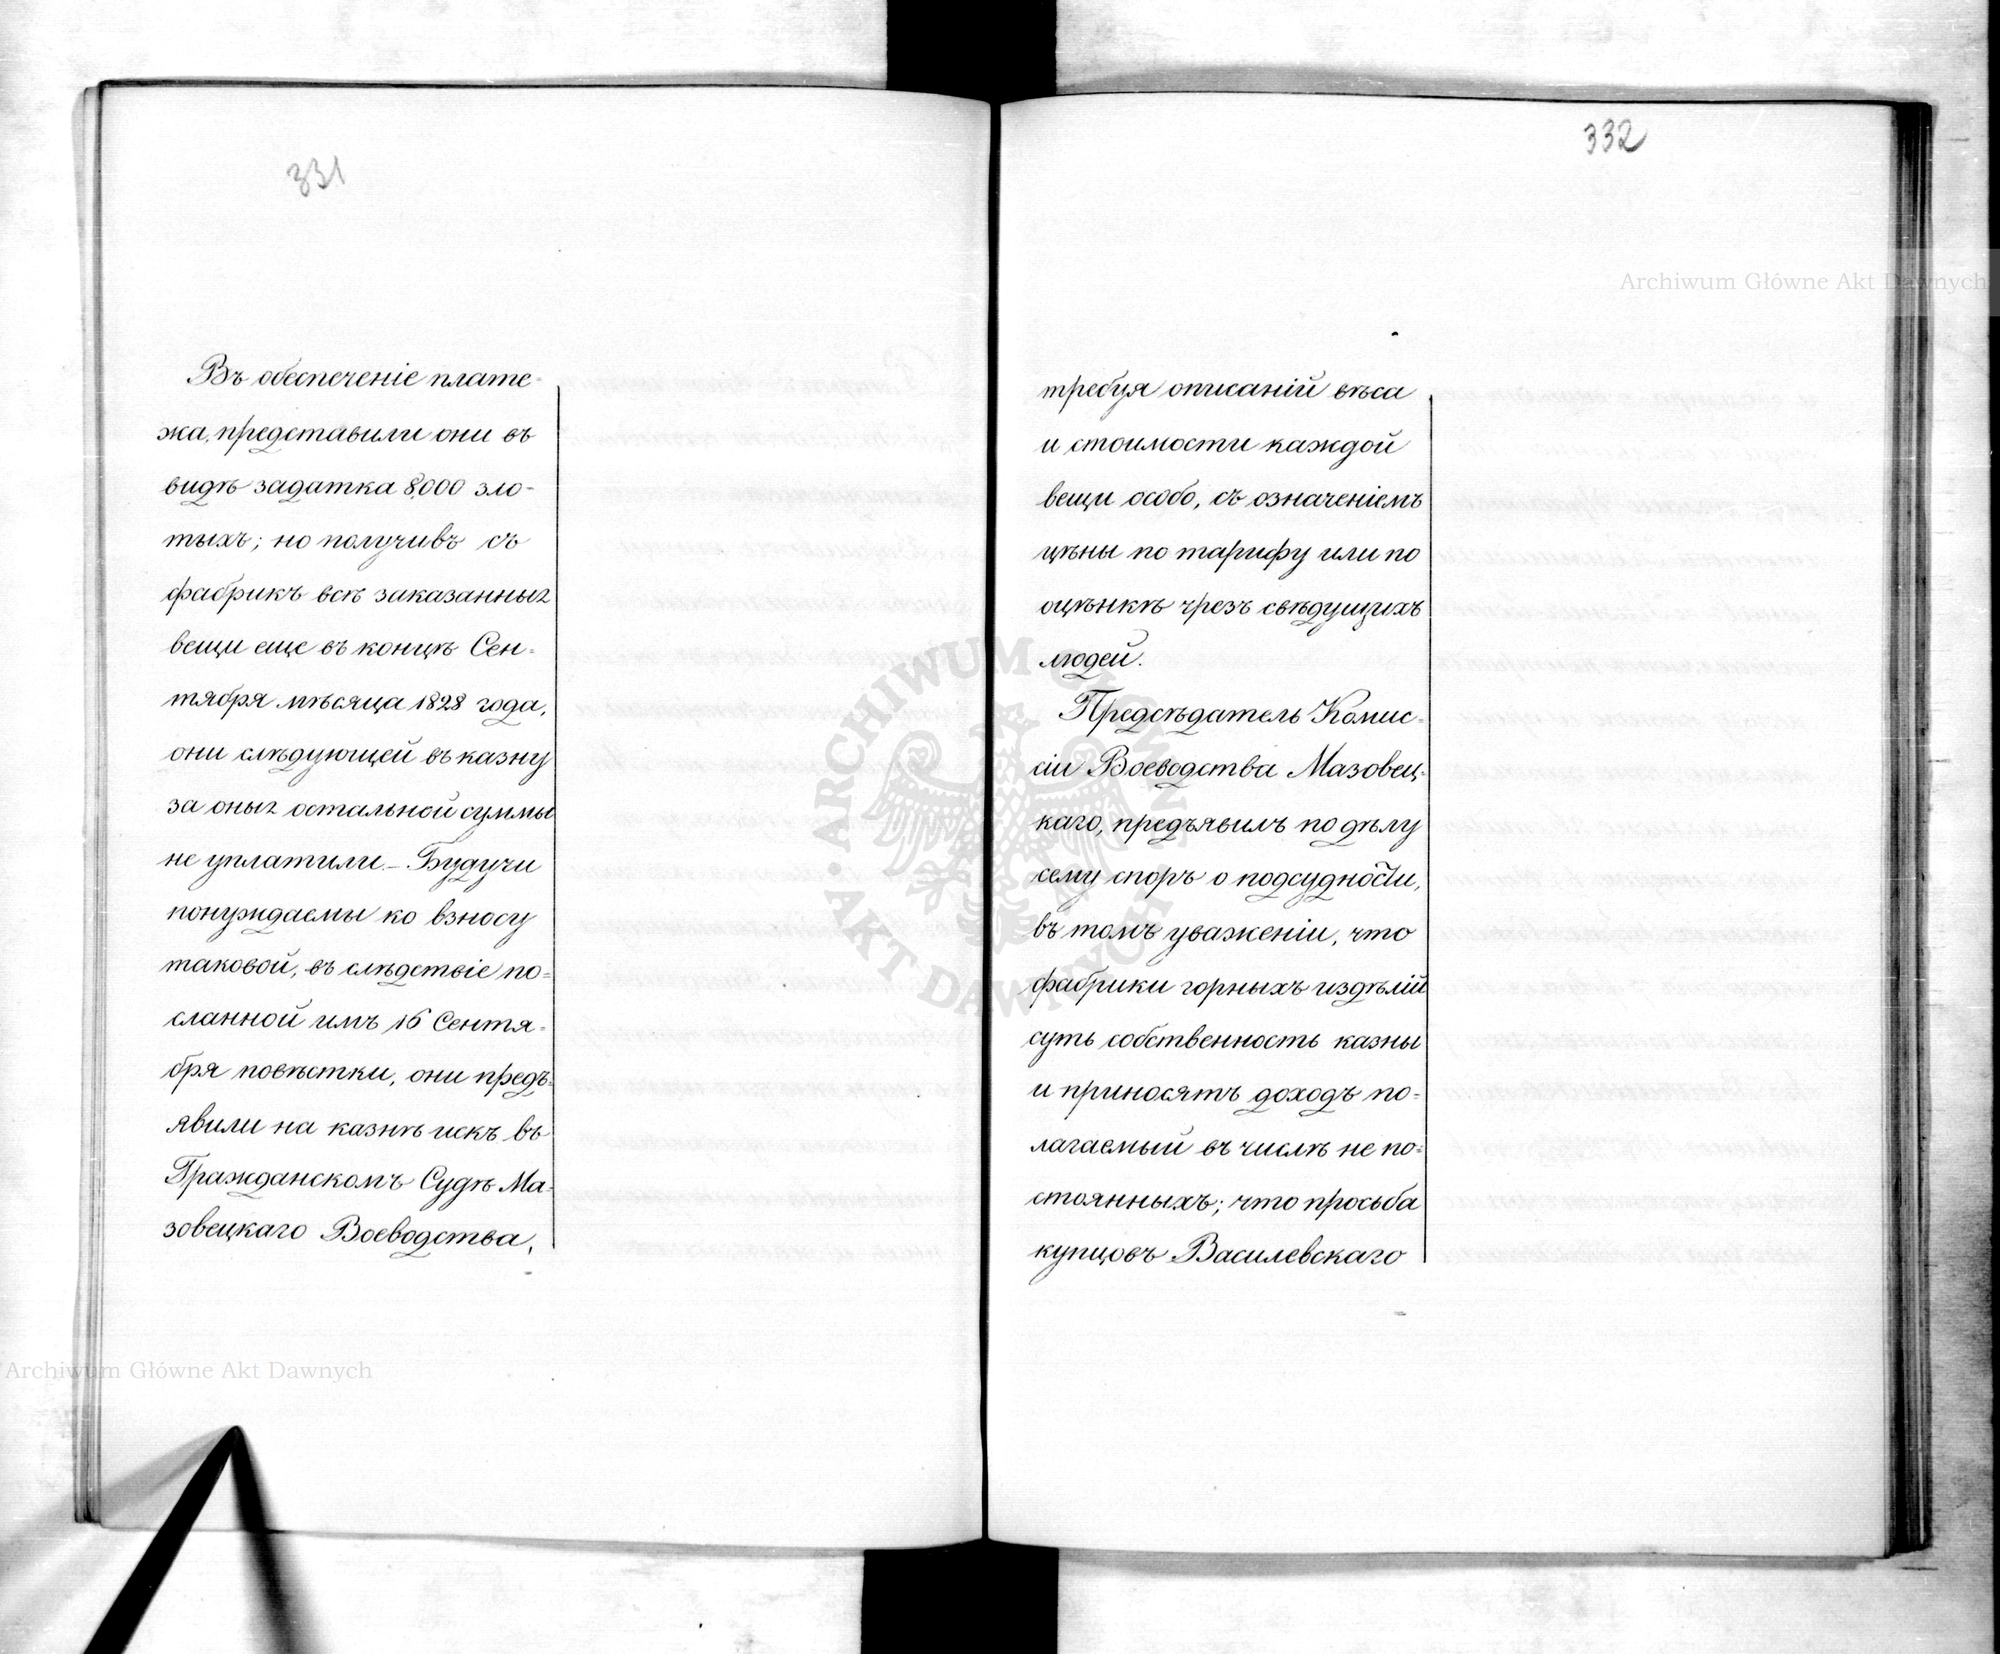 331
Въ обеспеченіе плате-
жа, представили они въ
видѣ задатка 8,000 зло-
тыхъ; но получивъ съ
фабрикъ всѣ заказанныя
вещи еще въ концѣ Сен-
тября мѣсяца 1828 года,
они слѣдующей въ казну
за оныя остальной суммы
не уплатили. – Будучи
понуждаемы ко взносу
таковой, въ слѣдствіе по-
сланной имъ 16 Сентя-
бря повѣстки, они предъ-
явили на казнѣ искъ въ
Гражданскомъ Судѣ Ма-
зовецкаго Воеводства,
332
требуя описаній вѣса
и стоимости каждой
вещи особо, съ означеніемъ
цѣны по тарифу или по
оцѣнкѣ чрезъ свѣдущихъ
людей.
Предсѣдатель Комис-
сіи Воеводства Мазовец-
каго, предъявилъ по дѣлу
сему споръ о подсудности,
въ томъ уваженіи, что
фабрики горныхъ издѣлій
суть собственность казны
и приносятъ доходъ по-
лагаемый въ числѣ не по-
стоянныхъ; что просьба
купцовъ Василевскаго
Archiwum Główne Akt Dawnych
Archiwum Główne Akt Dawnych
ARCHIWUM GŁÓWNE AKT DAWNYCH